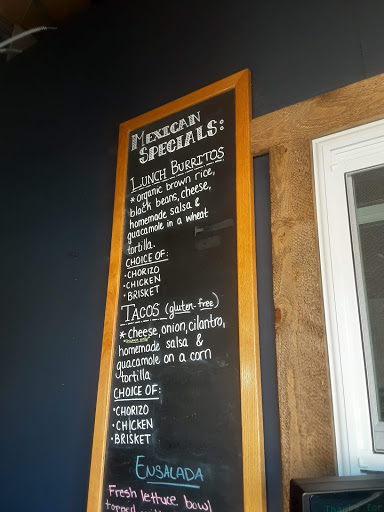 MEXICAN
SPECIALS:
LUNCH BURRITOS
* organic brown rice,
black beans, cheese,
homemade salsa &
guacamole in a wheat
tortilla.
CHOICE OF:
• CHORIZO
• CHICKEN
• BRISKET
TACOS (gluten-free)
* cheese, onion, cilantro,
homemade salsa &
guacamole on a corn
tortilla
CHOICE OF:
• CHORIZO
• CHICKEN
• BRISKET
ENSALADA
Fresh lettuce bowl
topped